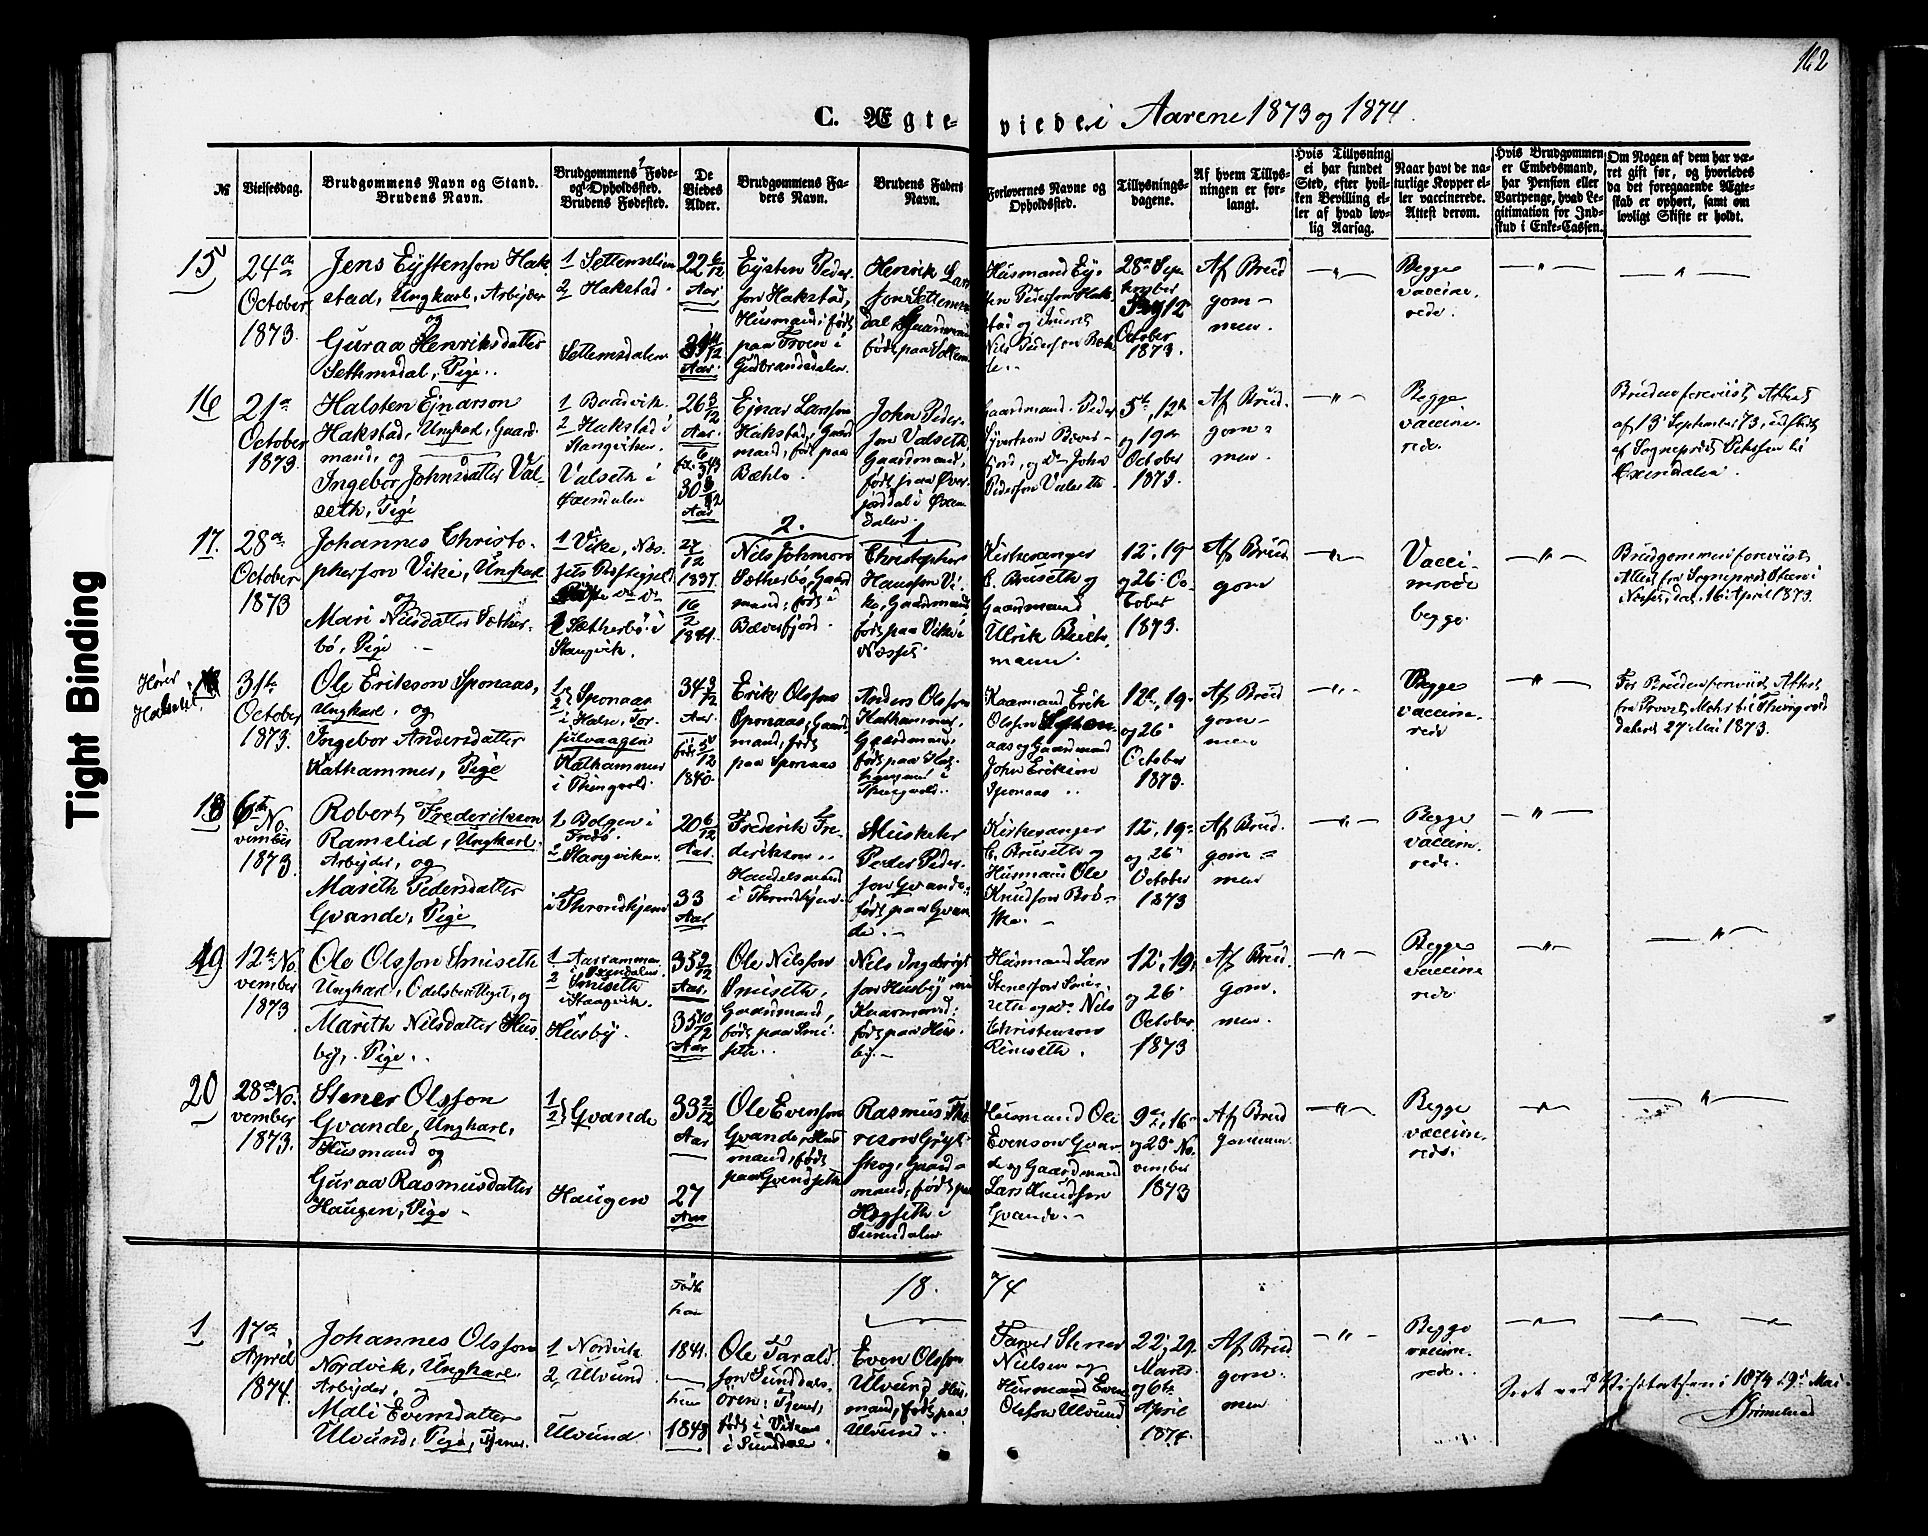 162
C. Ægte-viede i Aarene 1873 og 1874.
Tight Binding
№
Vielsesdag.
Brudgommens Navn og Stand.
Brudens Navn.
Brudgommens Føde-
og Opholdssted.
Brudens Fødested.
De
Viedes
Alder.
Brudgommens Fa-
ders Navn.
Brudens Faders
Navn.
Forlovernes Navne og
Opholdssted.
Tillysnings-
dagene.
Af hvem Tillys-
ningen er for-
langt.
Hvis Tillysning
ei har fundet
Sted, efter hvil-
ken Bevilling el-
ler af hvad lov-
lig Aarsag.
Naar havt de na-
turlige Kopper el-
ler vaccinerede.
Attest derom.
Hvis Brudgommen
er Embedsmand,
har Pension eller
Vartpenge, hvad Le-
gitimation for Ind-
skud i Enke-Cassen.
Om Nogen af dem har væ-
ret gift før, og hvorledes
da det foregaaende Ægte-
skab er ophørt, samt om
lovligt Skifte er holdt.
15
24de
October
1873.
Jens Eystenson Hak-
stad, Ungkarl, Arbejder
og
Guraa Henriksdatter
Settemsdal, Pige.
1 Settemsdalen
2 Hakstad.
Settemsdalen
22 6/12
Aar
Aar.
Eysten Peder-
son Hakstad,
Husmand, født
paa Troen i
Gudbrandsdalen
Henrik Lars
son Settems
dal, Gaardmand
født paa Settem
Husmand Ey-
sten Pederson Hak-
stad og
Nils Pederson Bæk
28de Sep-
tember
5 og 12
October
1873.
Af Brud
gom-
men.
—"—
Begge
vaccine-
rede.
—"—
—"—
16
21de
October
1873
Halsten Ejnarson
Hakstad, Ungkarl, Gaard-
mand, og
Ingebor Johnsdatter Val-
seth, Pige
1 Baadvik.
2 Hakstad i
Stangviken
Valseth i
Øxendalen
26 3/12
Aar
30 8/12
Aar
Ejnar Larsson
Hakstad, Gaard
mand, født paa
Bæhlo.
John Peder-
son Valseth
Gaardmand,
født paa Øver-
jorddal i Øxen
dalen.
Gaardmand Peder
Syvertson Bæver-
fjord, og do John
Pederson Valseth
5te, 12te
og 19de
October
1873.
Af Brud-
gom-
men.
—"—
Begge
vaccine-
rede.
—"—
Bruden foreviist Attest
af 13 September 73, udstedt
af Sognepræst
Øxendalen.
17.
28de
October
1873
Johannes Christo-
pherson Vike, Ungkarl
og
Mari Nilsdatter Sæther-
bø, Pige
1 Vike, Næs-
sets Præstegjeld
2 Sætherbø i
Stangvik.
27/12
1837.
16/2
1841.
2.
Nils Johnson
Sætherbø, Gaard
mand, født i
Bæverfjord.
1.
Christopher
Hansson Vi-
ke, Gaardmand
født paa Vike i
Næsset.
Kirkesanger
C. Bruseth og
Gaardmand
Ulrik
mann.
12te, 19de
og 26de Oc-
tober
1873.
Af Brud
gom
—"—
Vacci-
nerede
begge.
—"—
Brudgommen foreviist
Attest fra Sognepræst
Næsset, dat. 16 April 1873.
Hører
Halse til
31te
October
1873.
Ole Erikson Sponaas,
Ungkarl, og
Ingebor Andersdatter
Kathammer, Pige
1 2 Sponaas
i Halse, Tor-
julvaagen
Kathammer
i Thingvold
34 9/12
Aar.
født 5/12
1840.
Erik Olsson
Sponaas, Gaard-
mand, født
paa Sponaas
Anders Olsson
Kathammer,
Gaardmand,
født paa Kat-
hammer i
Thingvold.
Kaarmand Erik
Olsson Spon-
aas og Gaardmand
John Erikson
Sponaas
12te, 19de
og 26de
October
1873.
Af Brud
gom-
men
—"—
Begge
vaccine-
rede
—"—
For Bruden foreviist Attest
fra Provst Mohr til Thingvold
dateret 27 Mai 1873.
18
6te No-
vember
1873
Robert Frederikson
Ramslid, Ungkarl.
Arbejder, og
Marith Pedersdatter
Gvande, Pige
1 Bolgen i
Fredø
2 Stangviken
i Throndhjem
20 6/12
Aar.
33
Aar
Frederik Fre-
derikson,
Handelsmand
i Throndhjem
Musketer
Peder Peder-
son Gvande,
født paa Gvan-
de.
Kirkesanger
C. Bruseth og
Husmand Ole
Knudson Brø-
ske.
12te, 19de
og 26de
October
1873
Af Brud-
gom-
men
—"—
Begge
vaccine-
rede.
—"—
19
12te No-
vember
1873
Ole Olsson Smiseth
Ungkarl, Odelsberettiget, og
Marith Nilsdatter Hus-
by, Pige.
1 Aasrammen
i Øxendalen
2 Smiseth
i Stangvik.
Husby.
35 2/12
Aar.
35 10/12
Aar
Ole Nilsson
Smiseth,
Gaardmand,
født paa Smi-
seth.
Nils Ingebrigt
son Husby
Kaarmand,
født paa Hus-
by.
Husmand Lars
Stenerson Smi-
seth og do Nils
Christensson
Smiseth.
12te, 19de
og 26de
October
1873
Af Brud-
gom-
men
—"—
Begge
vaccine
rede
—"—
—"—
20
28de No-
vember
1873.
Stener Olsson
Gvande, Ungkarl,
Husmand og
Guraa Rasmusdatter
Haugen, Pige
1 2 Gvande
Haugen
33 2/12
Aar
27
Aar
Ole Evenson
Gvande, Hus-
mand, født
paa Gvendseth
Rasmus Tho-
reson
skog, Gaard-
mand, født paa
Høgseth i
Surendalen
Husmand Ole
Evenson Gvan-
de og Gaardmand
Lars Knudson
Gvande.
9de, 16de
og 23de No-
vember
1873
Af Brud
gommen
—"—
Begge
vaccine-
rede.
—"—
—"—
1874
Født
han
1
17de
April
1874.
Johannes Olsson
Nordvik, Ungkarl.
Arbejder, og
Mali Evensdatter
Ulvund, Pige, Tjener
1 Nordvik
2 Ulvund
Ulvund.
1841.
hun
1848
Ole Tarald-
son Sunddals-
øren, Tjener,
født i
i Sunddalen
Even Olsson
Ulvund, Hus-
mand, født paa
Ulvund.
Farver Stener
Nielsen og
Husmand Even
Olsson Ulvund
22de, 29de
Marts
og 6te
April
1874.
Af Brud
gom-
men
—"—
Begge
vaccine-
rede.
—"—
—"—
Seet ved Visitatsen i 1874 29de Mai